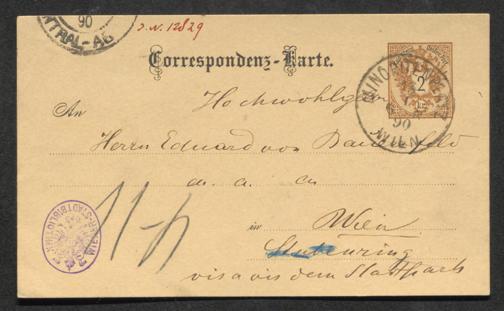 90
J.N. 12829
Correspondenz-Karte.
2
An
Hochwohlgeb
90
WIEN
Herrn Eduard von Bauernfeld
in Wien
Stubenring
vis a vis dem Stadtpark